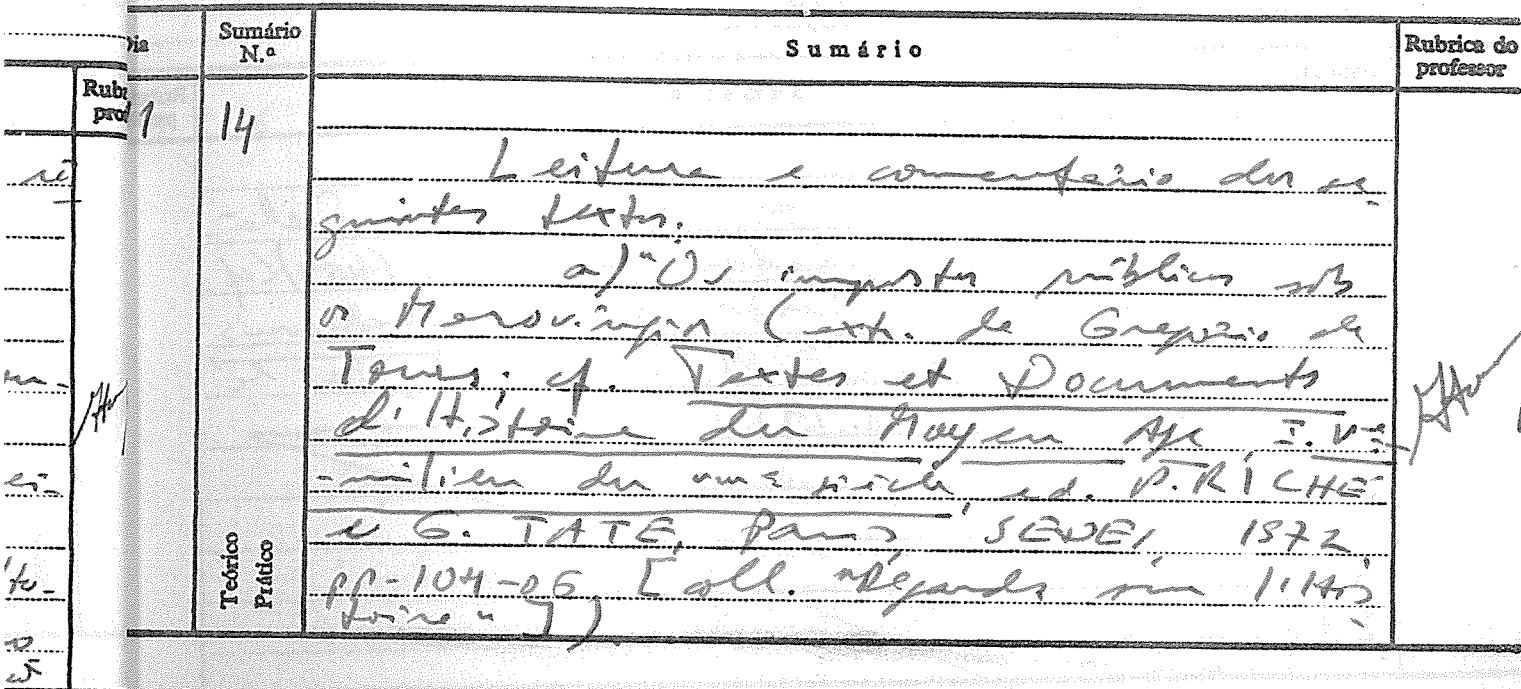 Dia
Sumário N.º
Sumário
Rubrica do professor
1
14
Leitura e comentário dos se-
guintes textos:
a) "Os impostos públicos sob
os Merovíngios (extr. de Gregório de
Tours; cf. Textes et Documents
d'Histoire du Moyen Age, I. Ve-
-milieu du VIIIe siècle, ed. P. RICHÉ
e G. TATE, Paris, SEDES, 1972,
pp. 104-06 [coll. "Regards sur l'His
toire"])
Teórico
Prático